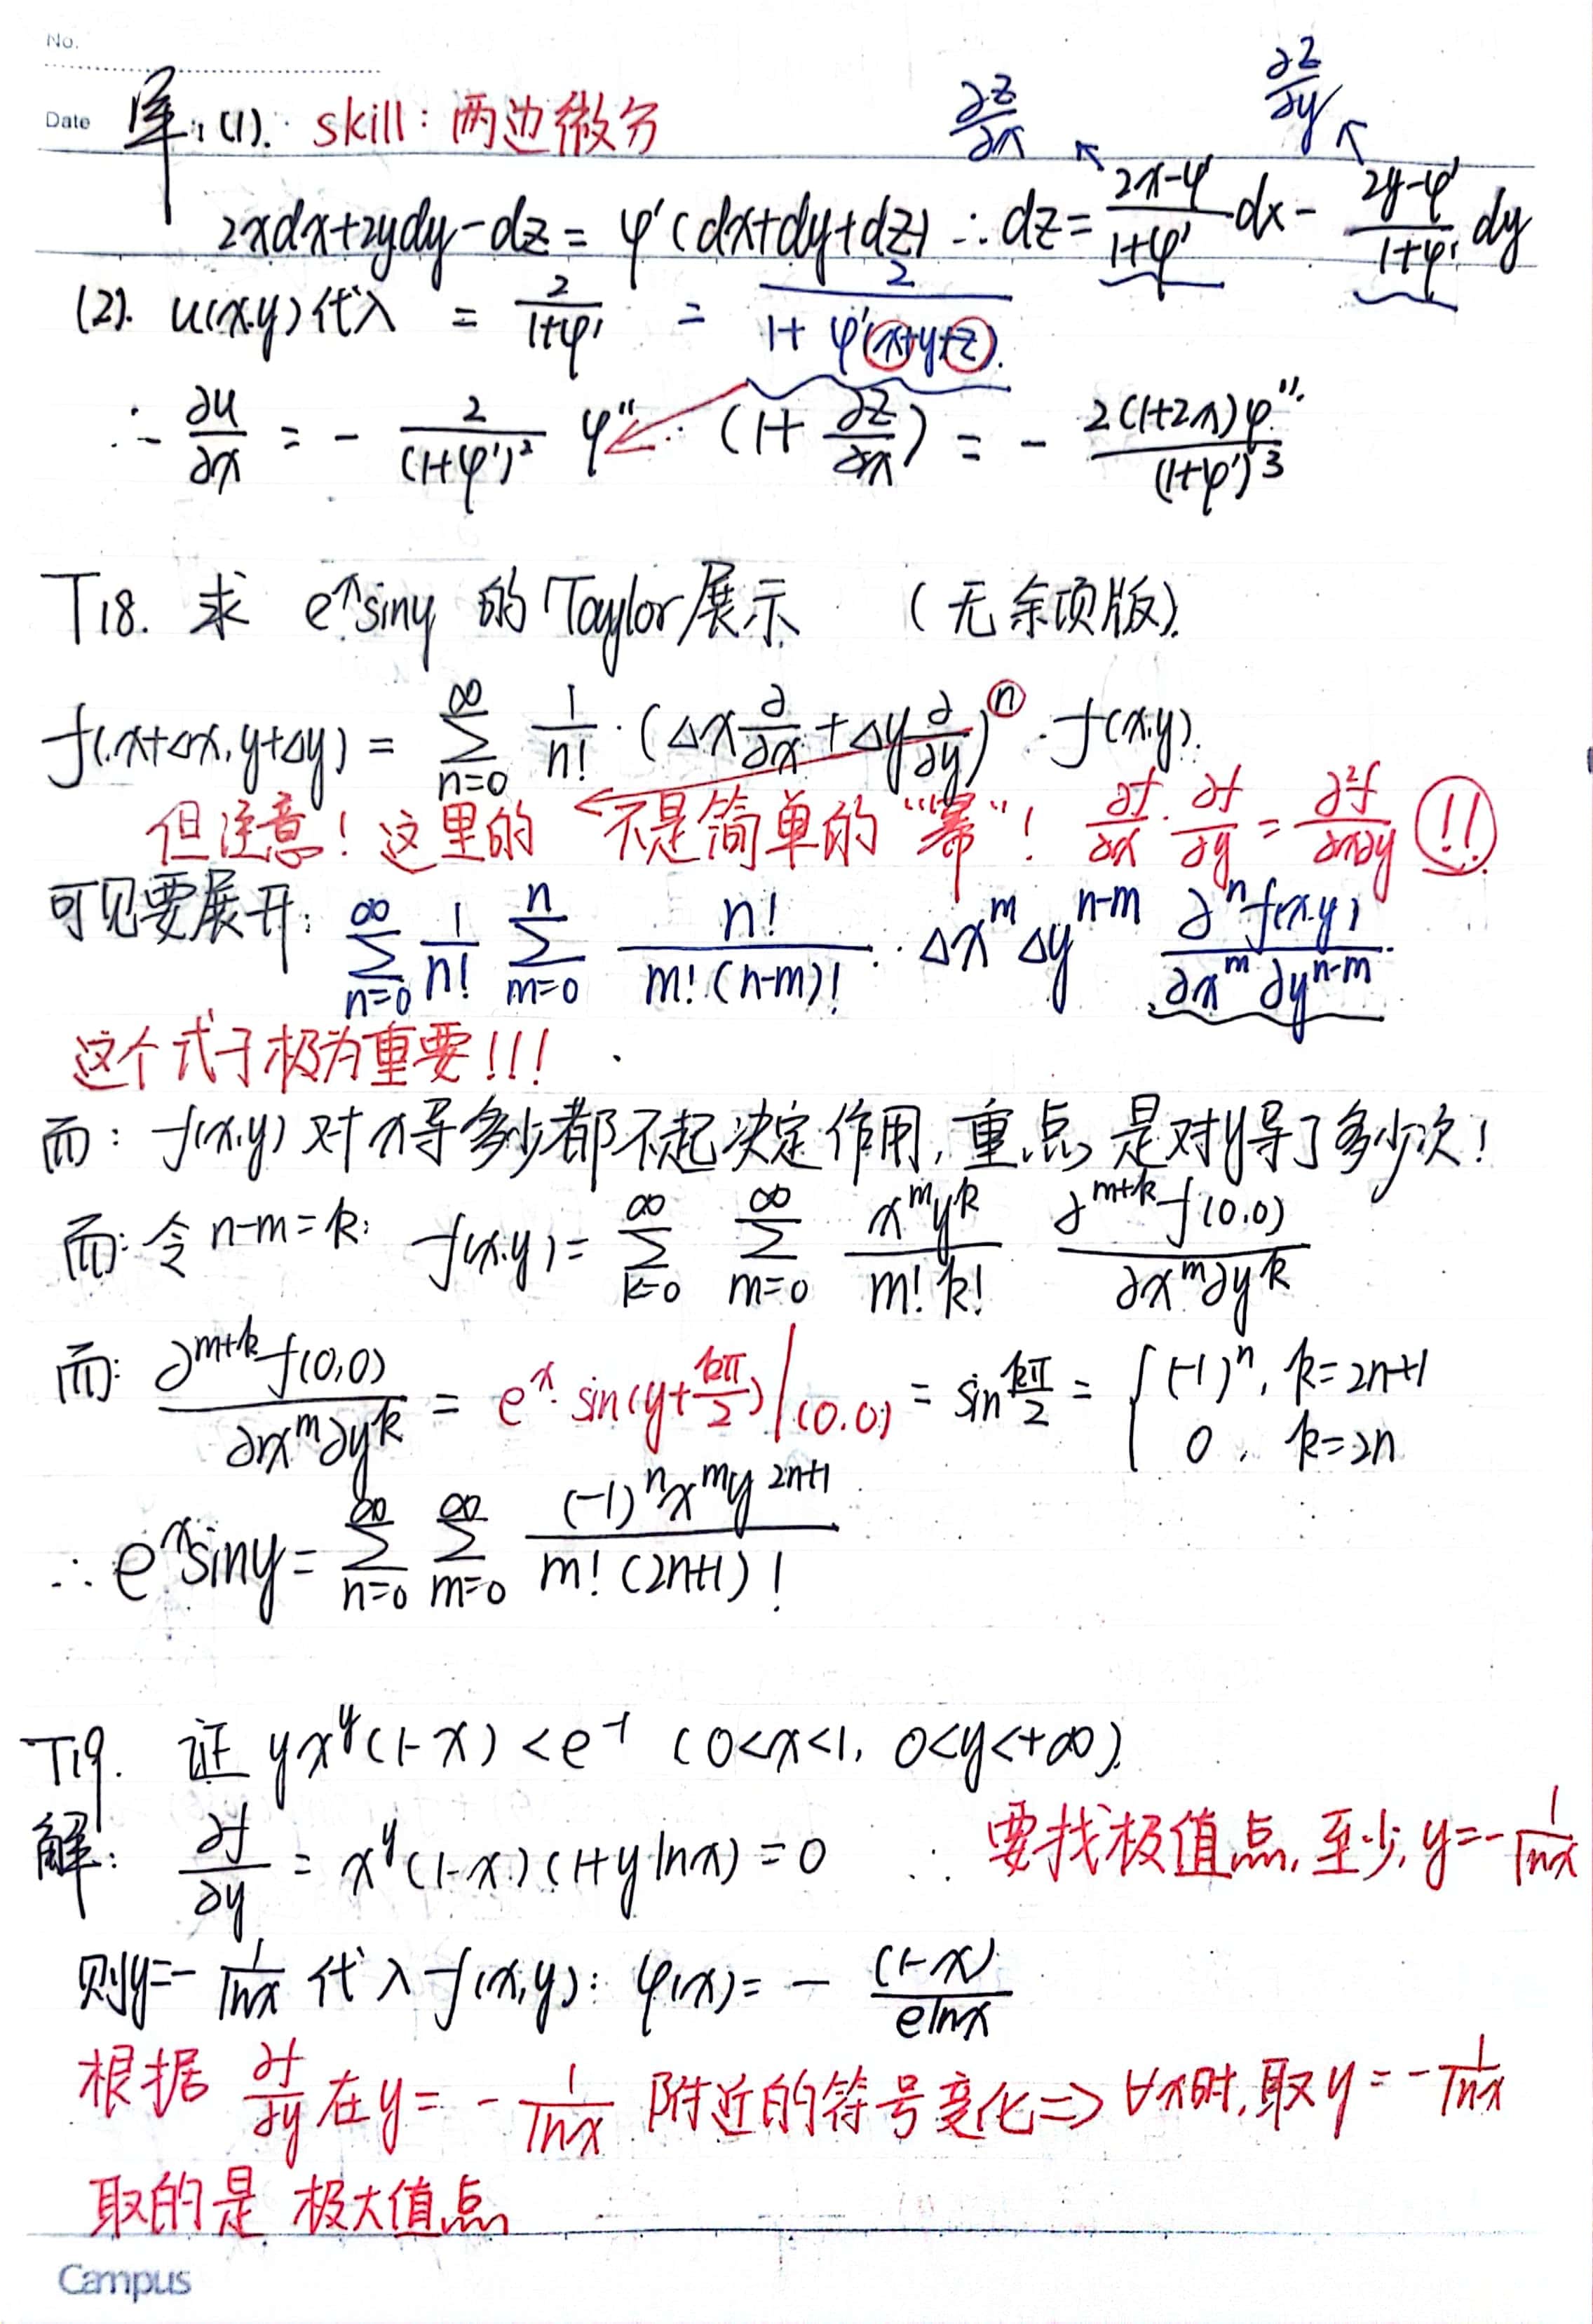 No.
Date
解:(1). skill: 两边微分 ∂z/∂x ∂z/∂y
2xdx+2ydy-dz = φ'(dx+dy+dz) ∴ dz = (2x-φ')/(1+φ') dx - (2y-φ')/(1+φ') dy
(2). u(x,y)代入 = 2/(1+φ') = 2/(1+φ'(x+y+z)).
∴ ∂u/∂x = - 2/(1+φ')² φ''·(1+ ∂z/∂x) = - 2(1+2x)φ''/(1+φ')³
T18. 求 e^x siny 的 Taylor 展示 (无余项版).
f(x+Δx, y+Δy) = ∑_{n=0}^{∞} 1/n! · (Δx ∂/∂x + Δy ∂/∂y)^n · f(x,y).
但注意! 这里的 不是简单的 "幂"! ∂f/∂x · ∂f/∂y = ∂²f/∂x∂y !!
可见要展开: ∑_{n=0}^{∞} 1/n! ∑_{m=0}^{n} n!/(m!(n-m)!) · Δx^m Δy^{n-m} ∂^n f(x,y)/(∂x^m ∂y^{n-m})
这个式子极为重要!!!
而: f(x,y) 对x导多少都不起决定作用, 重点是对y导了多少次!
而: 令 n-m=k: f(x,y) = ∑_{k=0}^{∞} ∑_{m=0}^{∞} x^m y^k/(m! k!) ∂^{m+k} f(0,0)/(∂x^m ∂y^k)
而: ∂^{m+k} f(0,0)/(∂x^m ∂y^k) = e^x · sin(y+kπ/2)|(0,0) = sin kπ/2 = { (-1)^n, k=2n+1
0, k=2n
∴ e^x siny = ∑_{n=0}^{∞} ∑_{m=0}^{∞} (-1)^n x^m y^{2n+1}/(m!(2n+1)!)
T19. 证 yx^y(1-x) < e^{-1} (0<x<1, 0<y<+∞).
解: ∂f/∂y = x^y(1-x)(1+ylnx) = 0 ∴ 要找极值点, 至少 y=-1/lnx
则y=-1/lnx 代入 f(x,y): φ(x) = - (1-x)/(elnx)
根据 ∂f/∂y 在 y = -1/lnx 附近的符号变化 ⇒ ∀x时, 取 y = -1/lnx
取的是 极大值点
Campus